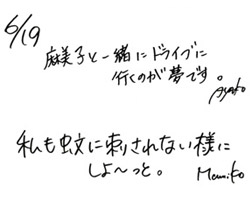 6/19
麻美子と一緒にドライブに
行くのが夢です。
Ayako
私も蚊に刺されない様に
しよ〜っと。
Mamiko